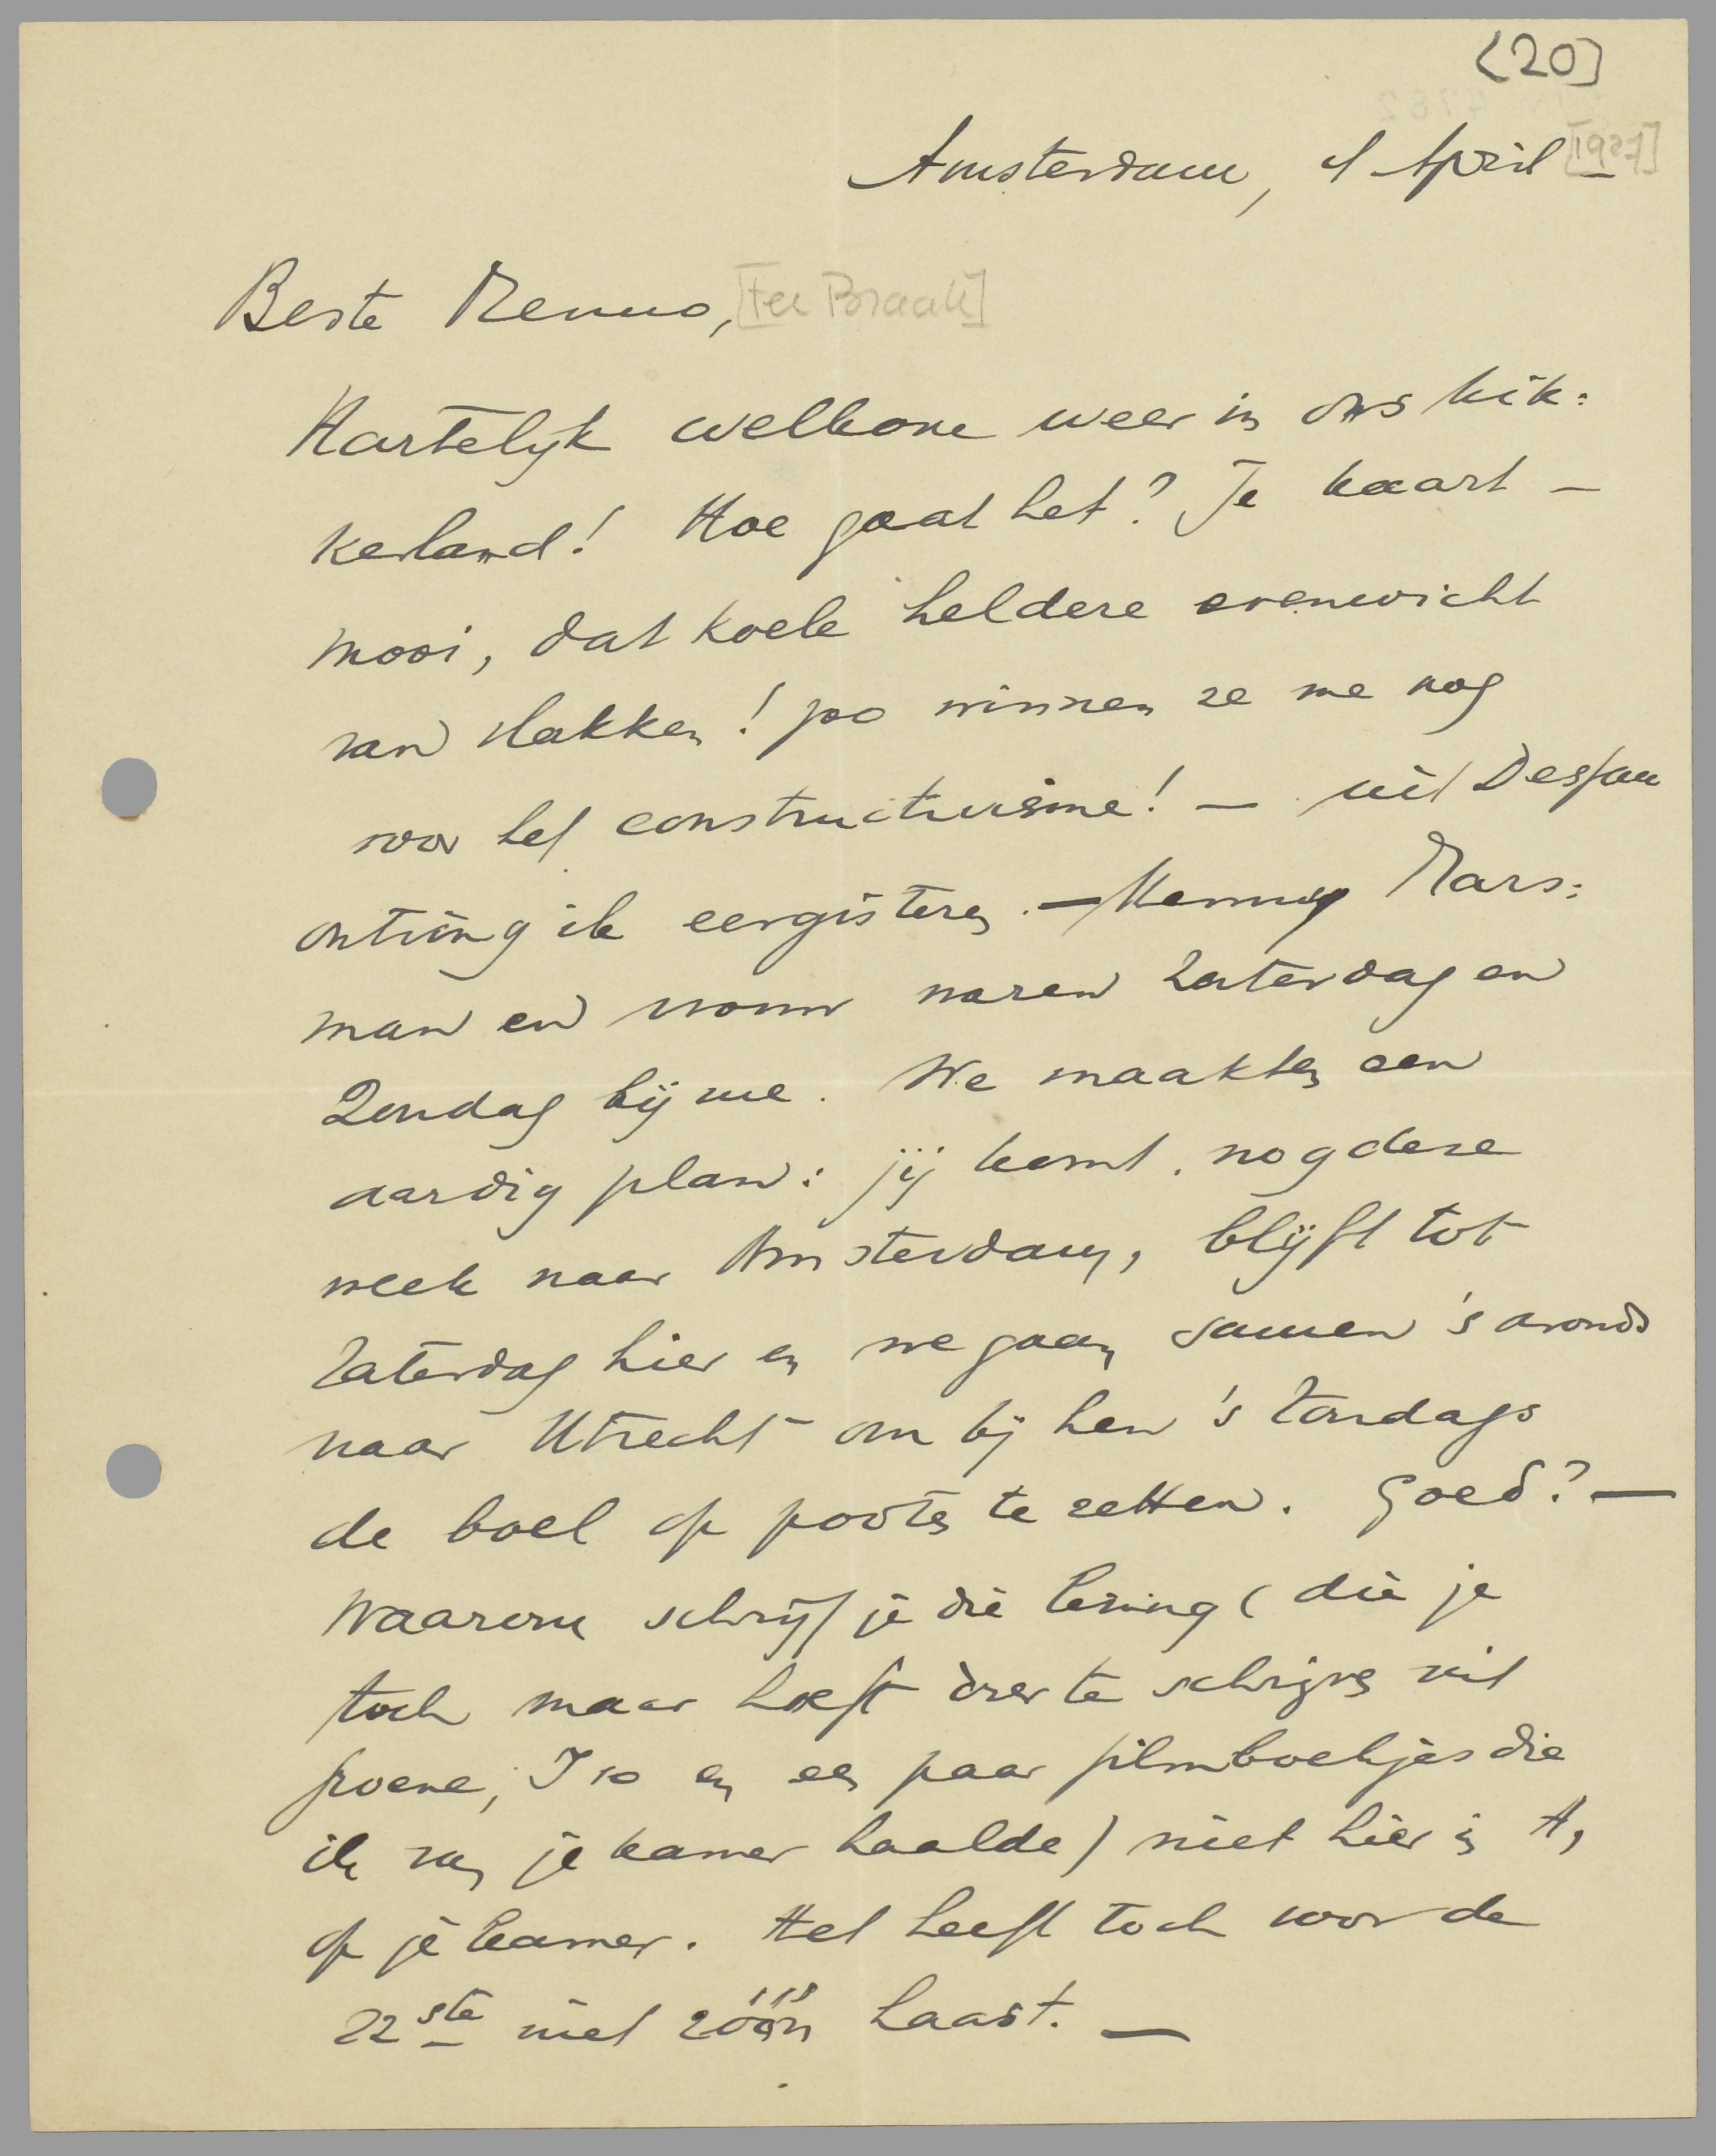 (20]
Amsterdam, 1 April [1927]
Beste Menno, [ter Braak]
Hartelijk welkom weer in ons kik=
kerland! Hoe gaat het? Je kaart –
mooi, dat koele heldere evenwicht
van vlakken! zoo winnen ze me nog
voor het constructivisme! – uit Dessau
ontving ik eergisteren. – Henny Mars=
man en vrouw waren Zaterdag en
Zondag bij me. We maakten een
aardig plan: jij komt nog deze
week naar Amsterdam, blijft tot
Zaterdag hier en we gaan samen 's avonds
naar Utrecht om bij hen 's Zondags
de boel op pooten te zetten. Goed? –
Waarom schrijf je die lezing (die je
toch maar hoeft over te schrijven uit
, I 10 en een paar filmboekjes die
ik van je kamer haalde) niet hier in A,
op je kamer. Het heeft toch voor de
22ste niet zóón haast. –